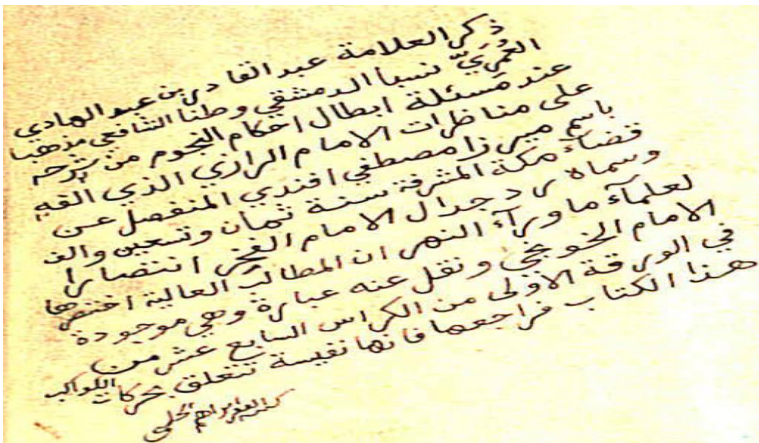 ذكر العلامة عبد القادر بن عبد الهادي
العُمَريّ نسبا الدمشقي وطنا الشافعي مذهبا
عند مسئلة ابطال احكام النجوم من شرحه
على مناظرات الامام الرازي الذي الفه
باسم ميرزا مصطفي افندي المنفصل عن
قضاء مكة المشرفة سنة ثمان وتسعين والف
وسماه رد جدال الامام الفخر انتصارا
لعلمآء ما ورآء النهر ان المطالب العالية اختصرها
الامام الخونجي ونقل عنه عبارة وهي موجودة
في الورقة الأولى من الكراس السابع عشر من
هذا الكتاب فراجعها فانها نفيسة تتعلق بحركات الكواكب
كتبه الفقير ابراهيم الحلبي